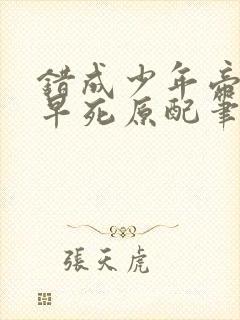 錯成少年帝
早死原配筆
張天虎